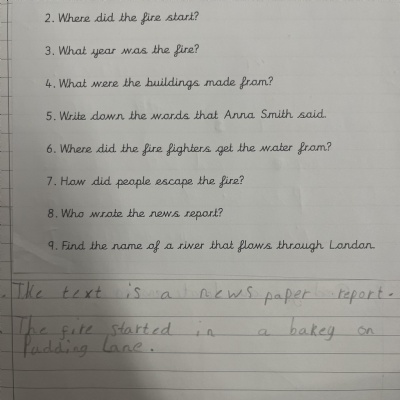 2. Where did the fire start?
3. What year was the fire?
4. What were the buildings made from?
5. Write down the words that Anna Smith said.
6. Where did the fire fighters get the water from?
7. How did people escape the fire?
8. Who wrote the news report?
9. Find the name of a river that flows through London.
The text is a news paper report.
The fire started in a bakey on
Pudding Lane.